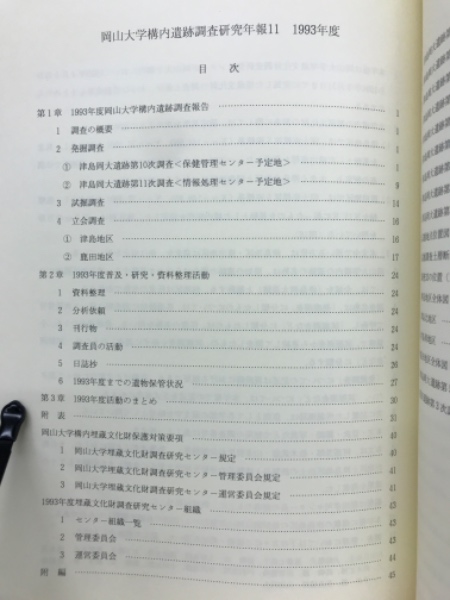 岡山大学構内遺跡調査研究年報11 1993年度
目 次
第1章 1993年度岡山大学構内遺跡調査報告 1
1 調査の概要 1
2 発掘調査 1
① 津島岡大遺跡第10次調査<保健管理センター予定地> 1
② 津島岡大遺跡第11次調査<情報処理センター予定地> 9
3 試掘調査 14
4 立会調査 16
① 津島地区 16
② 鹿田地区 17
第2章 1993年度普及・研究・資料整理活動 24
1 資料整理 24
2 分析依頼 24
3 刊行物 24
4 調査員の活動 24
5 日誌抄 26
6 1993年度までの遺物保管状況 27
第3章 1993年度活動のまとめ 30
附 表 31
岡山大学構内埋蔵文化財保護対策要項 40
1 岡山大学埋蔵文化財調査研究センター規定 40
2 岡山大学埋蔵文化財調査研究センター管理委員会規定 41
3 岡山大学埋蔵文化財調査研究センター運営委員会規定 41
1993年度埋蔵文化財調査研究センター組織 42
1 センター組織一覧 42
2 管理委員会 43
3 運営委員会 44
附 編 45